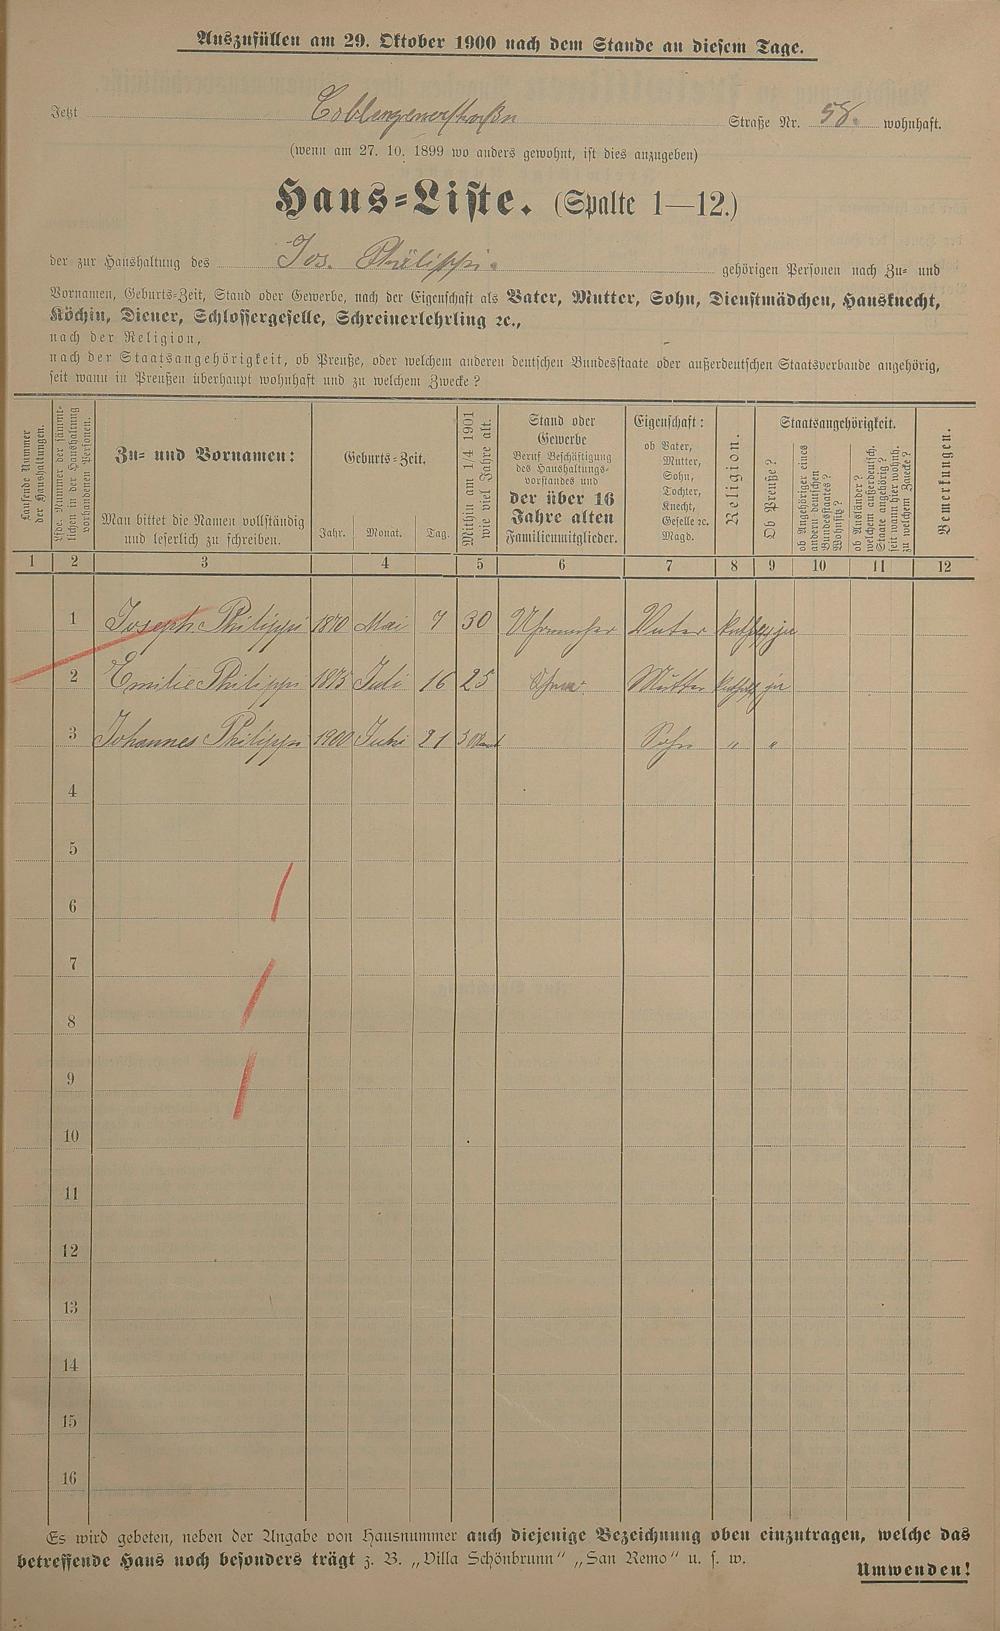 Auszufüllen am 29. Oktober 1900 nach dem Stande an diesem Tage.
Jetzt Coblenzenerstraße Straße Nr. 58. wohnhaft.
(wenn am 27. 10. 1899 wo anders gewohnt, ist dies anzugeben)
Haus-Liste. (Spalte 1—12.)
der zur Haushaltung des Jos. Philippi. gehörigen Personen nach Zu- und
Vornamen, Geburts-Zeit, Stand oder Gewerbe, nach der Eigenschaft als Vater, Mutter, Sohn, Dienstmädchen, Hausknecht,
Köchin, Diener, Schlossergeselle, Schreinerlehrling ꝛc.,
nach der Religion,
nach der Staatsangehörigkeit, ob Preuße, oder welchem anderen deutschen Bundesstaate oder außerdeutschen Staatsverbande angehörig,
seit wann in Preußen überhaupt wohnhaft und zu welchem Zwecke?
Laufende Nummer
der Haushaltungen.
Lfde. Nummer der sämmt-
lichen in der Haushaltung
vorhandenen Personen.
Zu- und Vornamen:
Man bittet die Namen vollständig
und leserlich zu schreiben.
Geburts-Zeit.
Jahr. Monat. Tag.
Mithin am 1/4 1901
wie viel Jahre alt.
Stand oder
Gewerbe
Beruf Beschäftigung
des Haushaltungs-
vorstandes und
der über 16
Jahre alten
Familienmitglieder.
Eigenschaft:
ob Vater,
Mutter,
Sohn,
Tochter,
Knecht,
Geselle ꝛc.
Magd.
Religion.
Staatsangehörigkeit.
Ob Preuße?
ob Angehöriger eines
andern deutschen
Bundesstaates?
Wohnsitz?
ob Ausländer?
welchem außerdeutsch.
Staate angehörig?
seit wann hier wohnh.
zu welchem Zwecke?
Bemerkungen.
1 2 3 4 5 6 7 8 9 10 11 12
1 Joseph Philippi 1870 Mai 7 30 Uhrmacher Vater kath ja
2 Emilie Philippi 1875 Juli 16 25 Mutter kath ja
3 Johannes Philippi 1900 Juli 21 3 Monat Sohn " "
4
5
6
7
8
9
10
11
12
13
14
15
16
Es wird gebeten, neben der Angabe von Hausnummer auch diejenige Bezeichnung oben einzutragen, welche das
betreffende Haus noch besonders trägt z. B. „Villa Schönbrunn" „San Remo" u. s. w.
Umwenden!